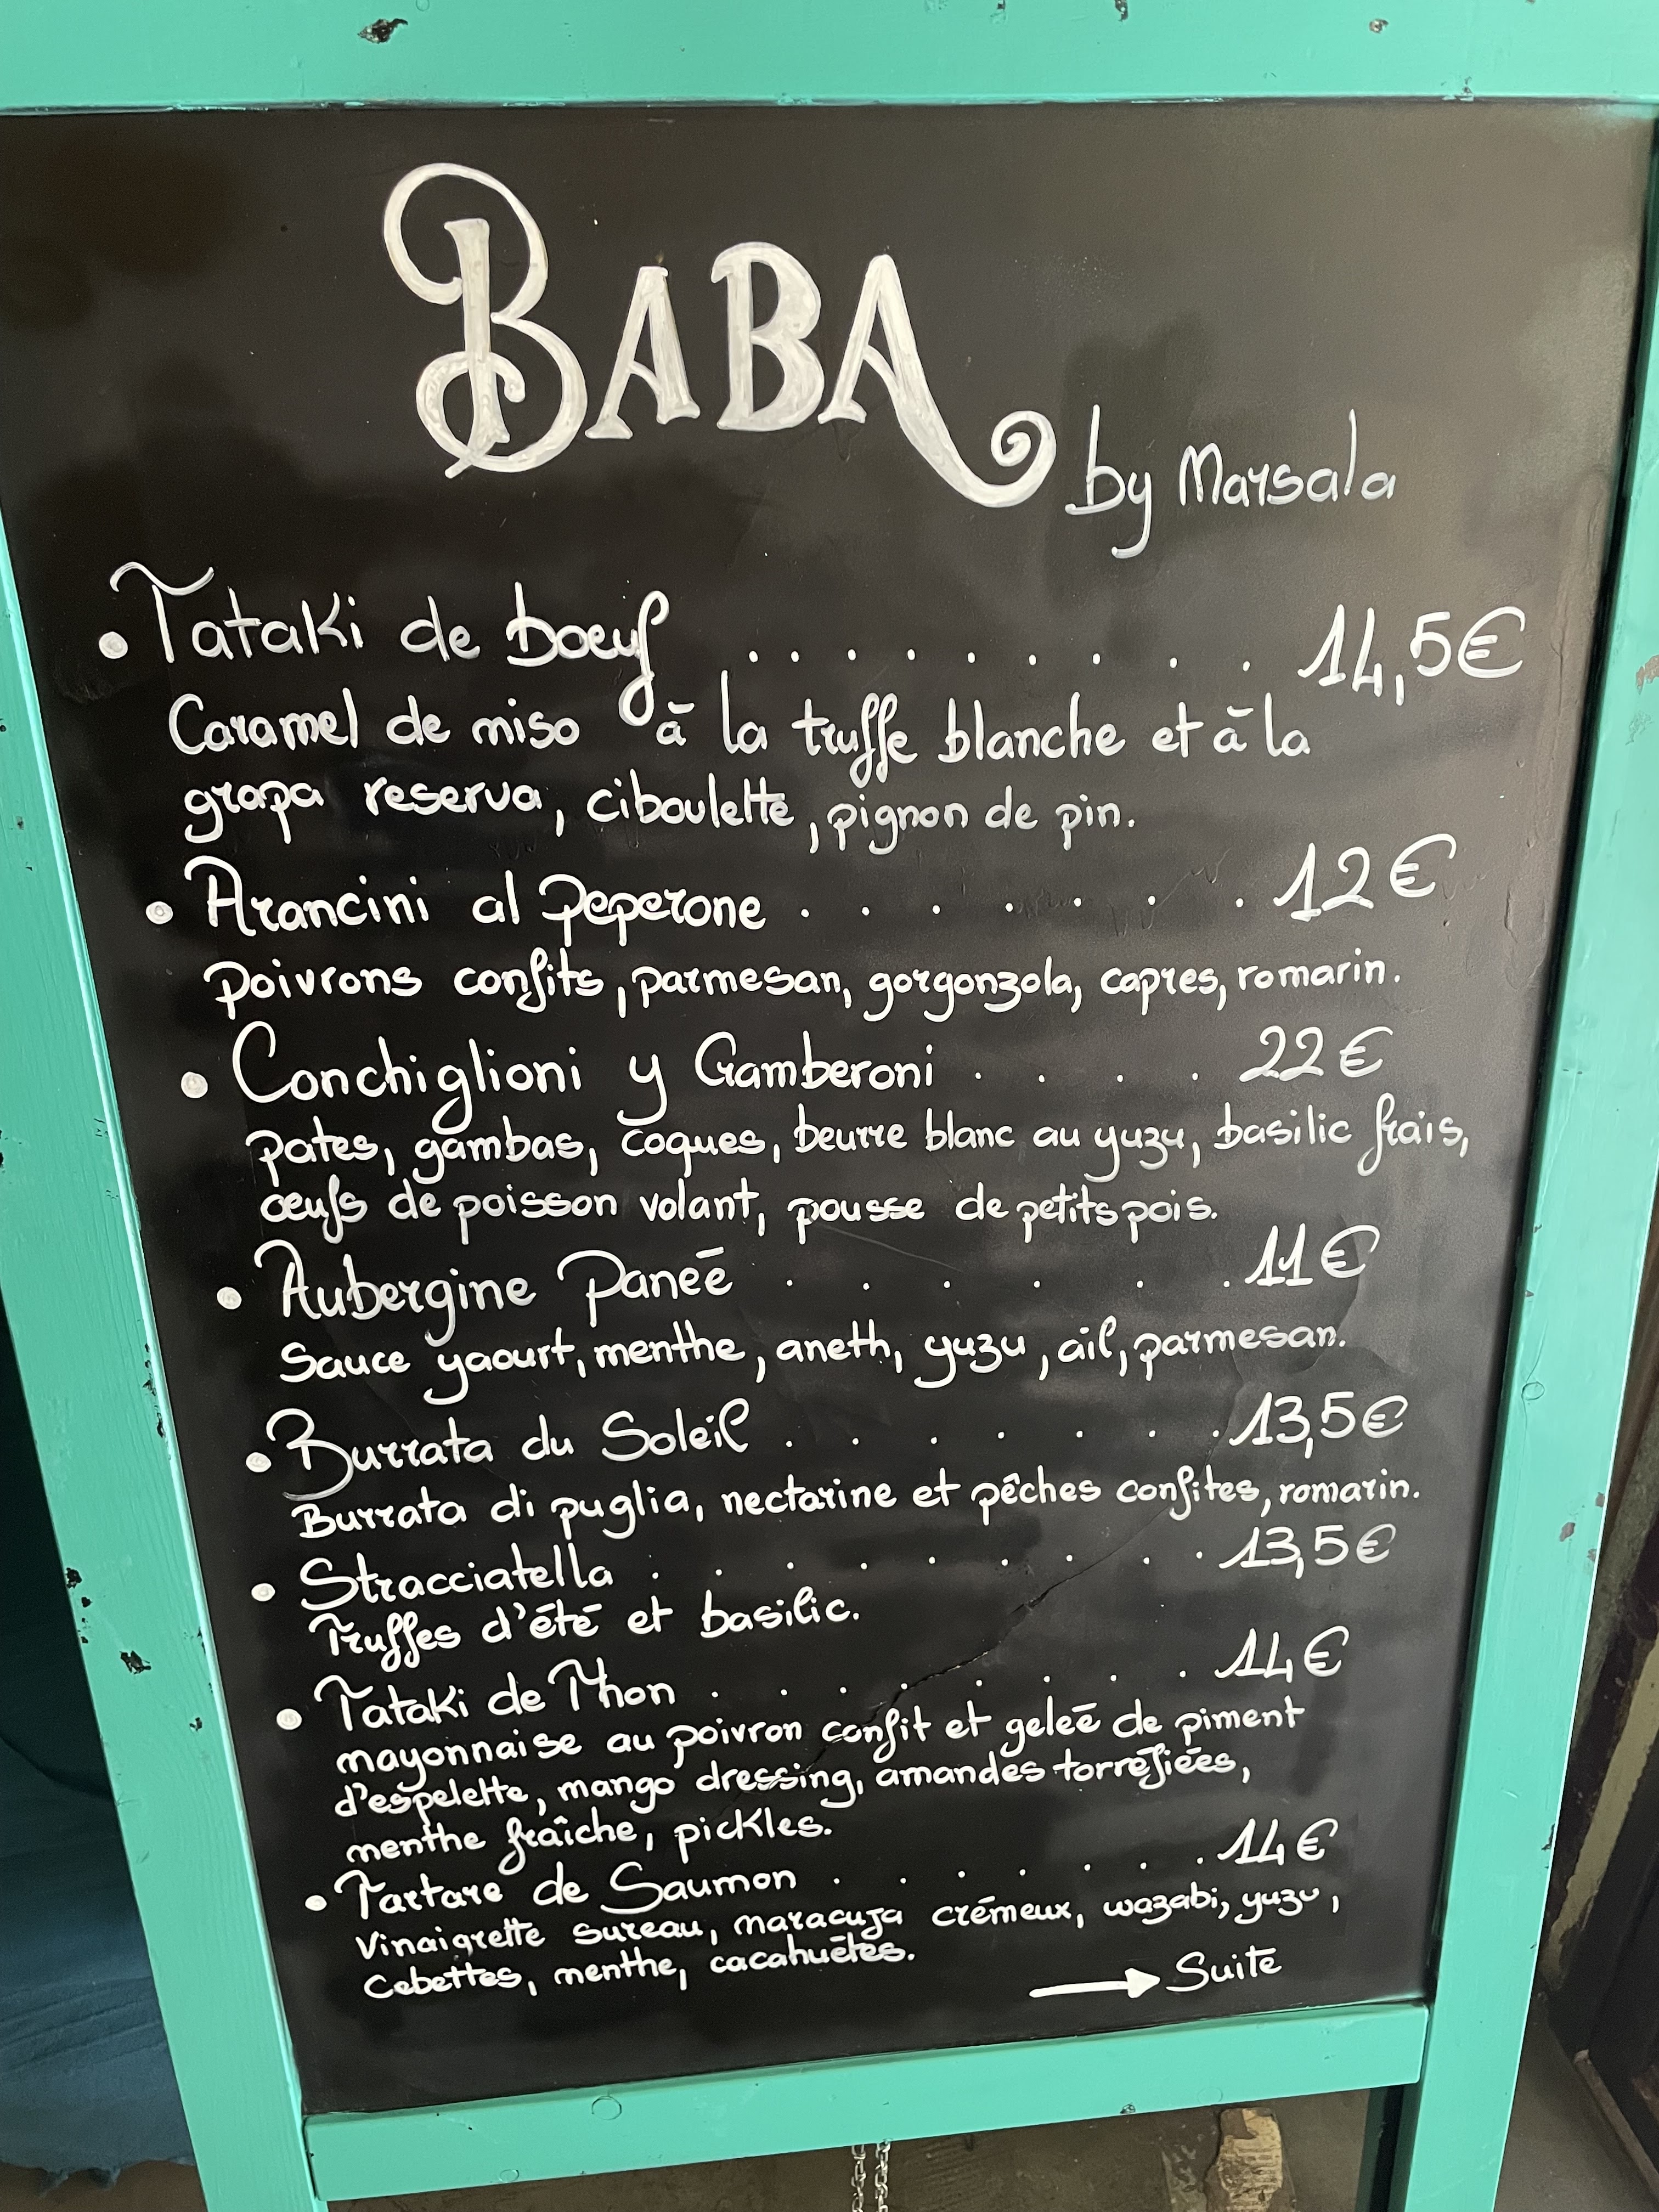 BABA
by Marsala
• Tataki de boeuf . . . . . . . . . 14,5€
Caramel de miso à la truffe blanche et à la
grapa reserva, ciboulette, pignon de pin.
• Arancini al Peperone . . . . . . . 12€
Poivrons confits, parmesan, gorgonzola, capres, romarin.
• Conchiglioni y Gamberoni . . . . 22€
pates, gambas, coques, beurre blanc au yuzu, basilic frais,
œufs de poisson volant, pousse de petits pois.
• Aubergine Paneé . . . . . . 11€
Sauce yaourt, menthe, aneth, yuzu, ail, parmesan.
• Burrata du Soleil . . . . . . . 13,5€
Burrata di puglia, nectarine et pêches confites, romarin.
• Stracciatella . . . . . . . . . 13,5€
Truffes d'été et basilic.
• Tataki de Thon . . . . . . . . 14€
mayonnaise au poivron confit et geleé de piment
d'espelette, mango dressing, amandes torréfiées,
menthe fraîche, pickles.
• Tartare de Saumon . . . . . . 14€
Vinaigrette sureau, maracuja crémeux, wazabi, yuzu,
Cebettes, menthe, cacahuétes.
→ Suite